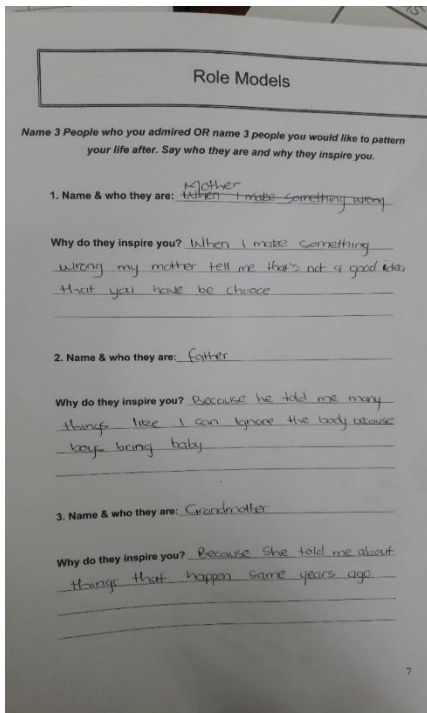 Role Models
Name 3 People who you admired OR name 3 people you would like to pattern
your life after. Say who they are and why they inspire you.
Mother
1. Name & who they are: When I make something wrong
Why do they inspire you? When I make something
wrong my mother tell me that's not a good idea
that you have be choose
2. Name & who they are: father
Why do they inspire you? Because he told me many
things like I can Ignore the body because
boys bring baby
3. Name & who they are: Grandmother
Why do they inspire you? Because She told me about
things that happen some years ago
7